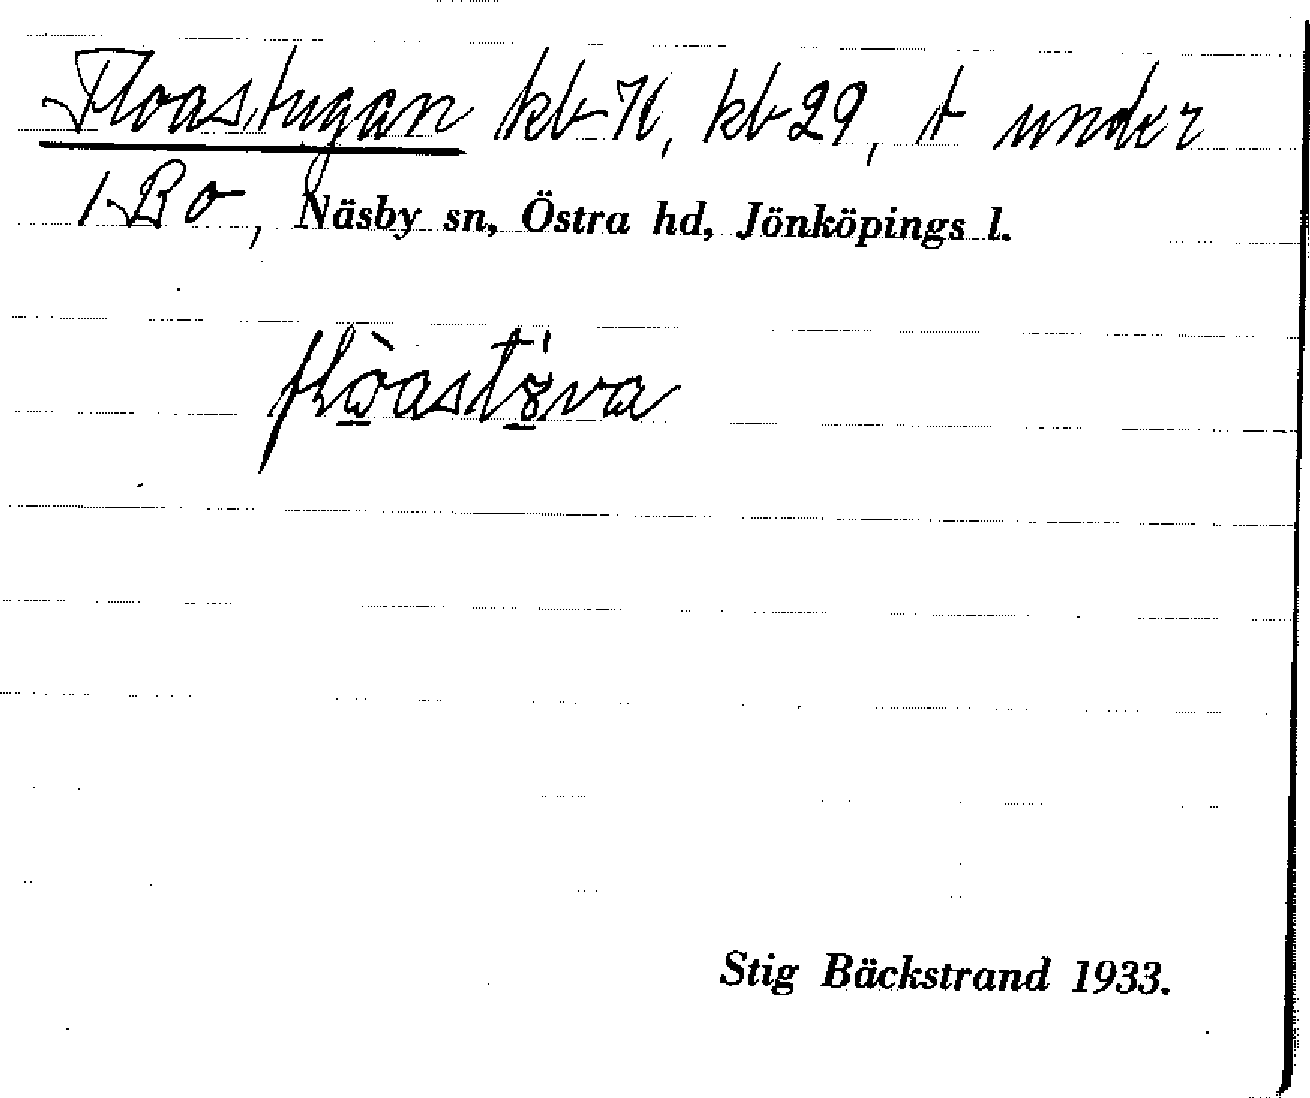 Floastugan kb 71, kb 29, t under
1 Bo, Näsby sn, Östra hd, Jönköpings l.
flò̲ast8̲́va
Stig Bäckstrand 1933.